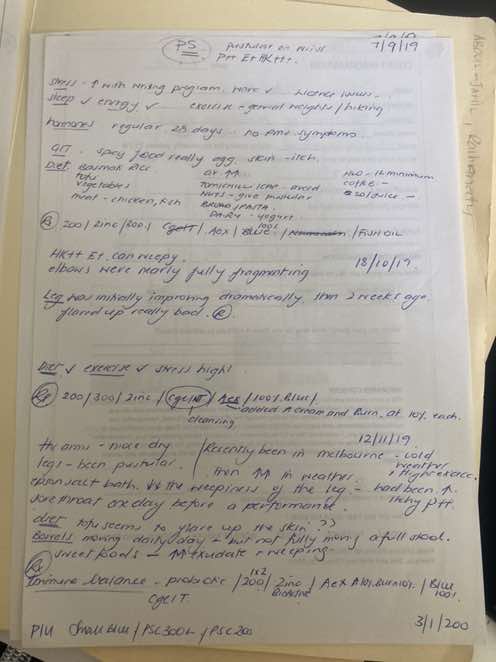 PS pustular on wrists 7/9/19
P++ E+ HK++.
stress - ↑ with nursing program. work ✓ licence issues.
sleep ✓ energy ✓ exercise - general weights / hiking
hormones regular 28 days - no PMT symptoms.
GIT - spicy food really agg. skin - itch.
Diet: Basmati Rice
tofu
vegetables
meat - chicken, fish
avoid
nuts - give pustular
BREAD / PASTA.
DAIRY - yogurt
H2O - 1L minimum
coffee -
Rx 200 / zinc / 300 / CgelT / Aex / BLUE 100% / FISH OIL
HK++ E+. can weepy. 18/10/19
elbows were nearly fully fragmenting
Leg was initially improving dramatically then 2 weeks ago
flared up really bad.
Diet ✓ exercise ✓ stress high!
Rx 200 / 300 / zinc / CgelT / Aex / 100% Blue /
added A cream and Burn. at 10% each.
cleaning
12/11/19
the arms - more dry
legs - been pustular.
Recently been in melbourne - cold weather
then ↑↑ in weather.
epsom salt bath. the weepiness of the leg - had been ↑.
sore throat one day before a performance. itchy P++
diet tofu seems to flare up the skin ??
Bowels moving daily - but not fully moving a full stool.
sweet foods - ↑ exudate & weeping.
Rx
Immune balance - probiotic / 200 1x2 / zinc / Aex A10% Burn10% / Blue 100%
CgelT
P/U small blue / PSC 300L / PSC 200 3/1/200